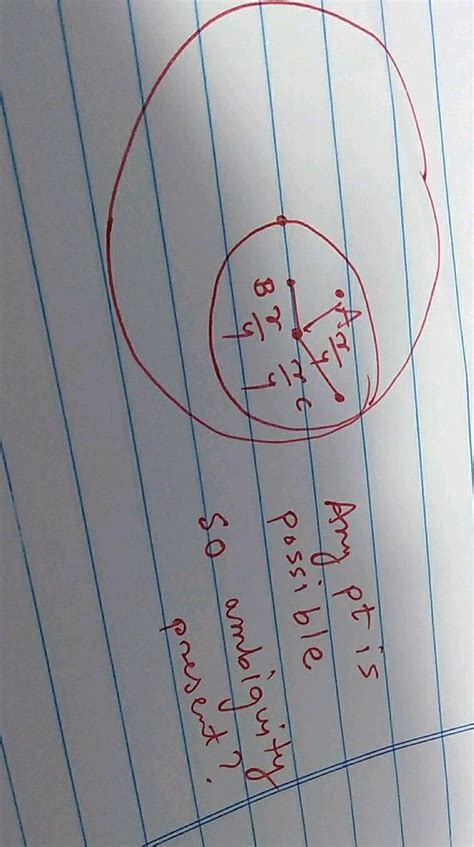 A r/4
B r/4
r/4 C
Any pt is
possible
so ambiguity
present?